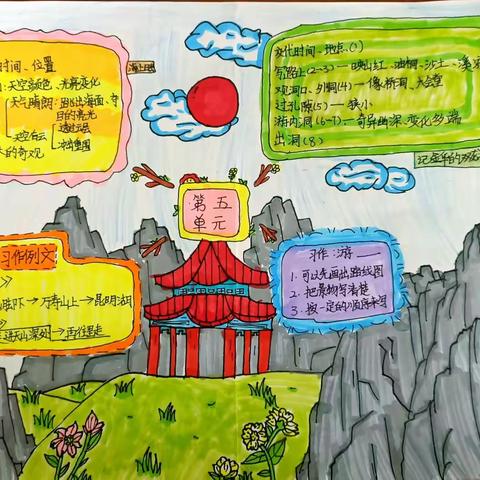 海上日出
时间、位置
天空颜色、光亮变化
天气晴朗:跳出海面、夺
目的亮光
天空有云
透过云层
冲破重围
的奇观
交代时间、地点(1)
写路上(2~3)—映山红、油桐、沙土、溪
观洞口、外洞(4)—像桥洞、大会堂
过孔隙(5)—狭小
游内洞(6~7)—奇异幽深、变化多端
出洞(8)
记金华的双龙
第五
单元
习作例文
》
脚下→万寿山上→昆明湖
》
进天山深处→再往里走
习作:游____
1.可以先画出路线图
2.把景物写清楚
3.按一定的顺序来写